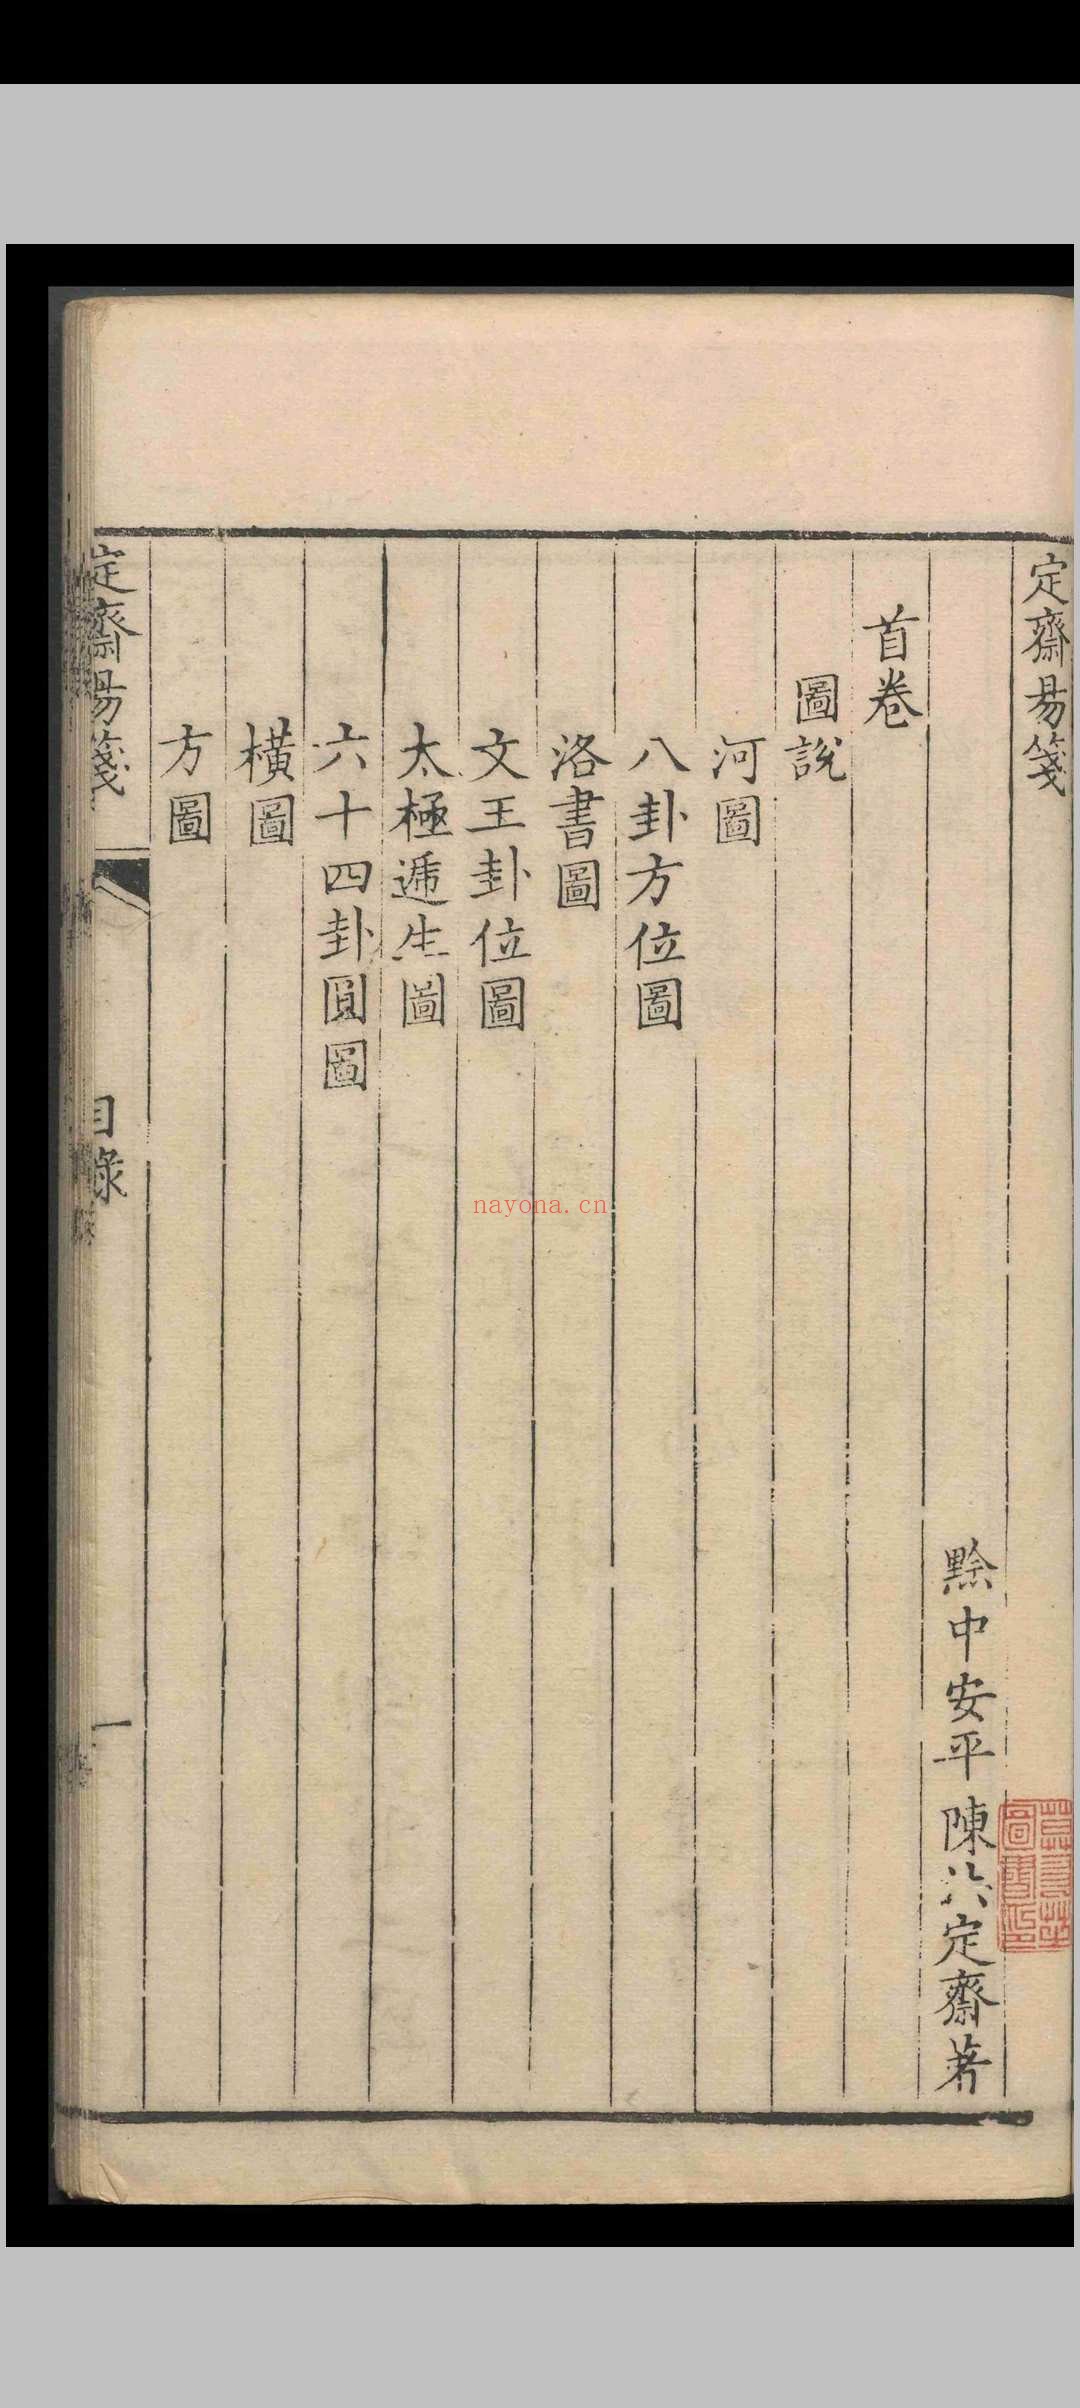 定齋易箋
黔中安平陳法定齋著
首卷
圖說
河圖
八卦方位圖
洛書圖
文王卦位圖
太極遞生圖
六十四卦圓圖
橫圖
方圖
定齋易箋
目錄
一
nayona.cn